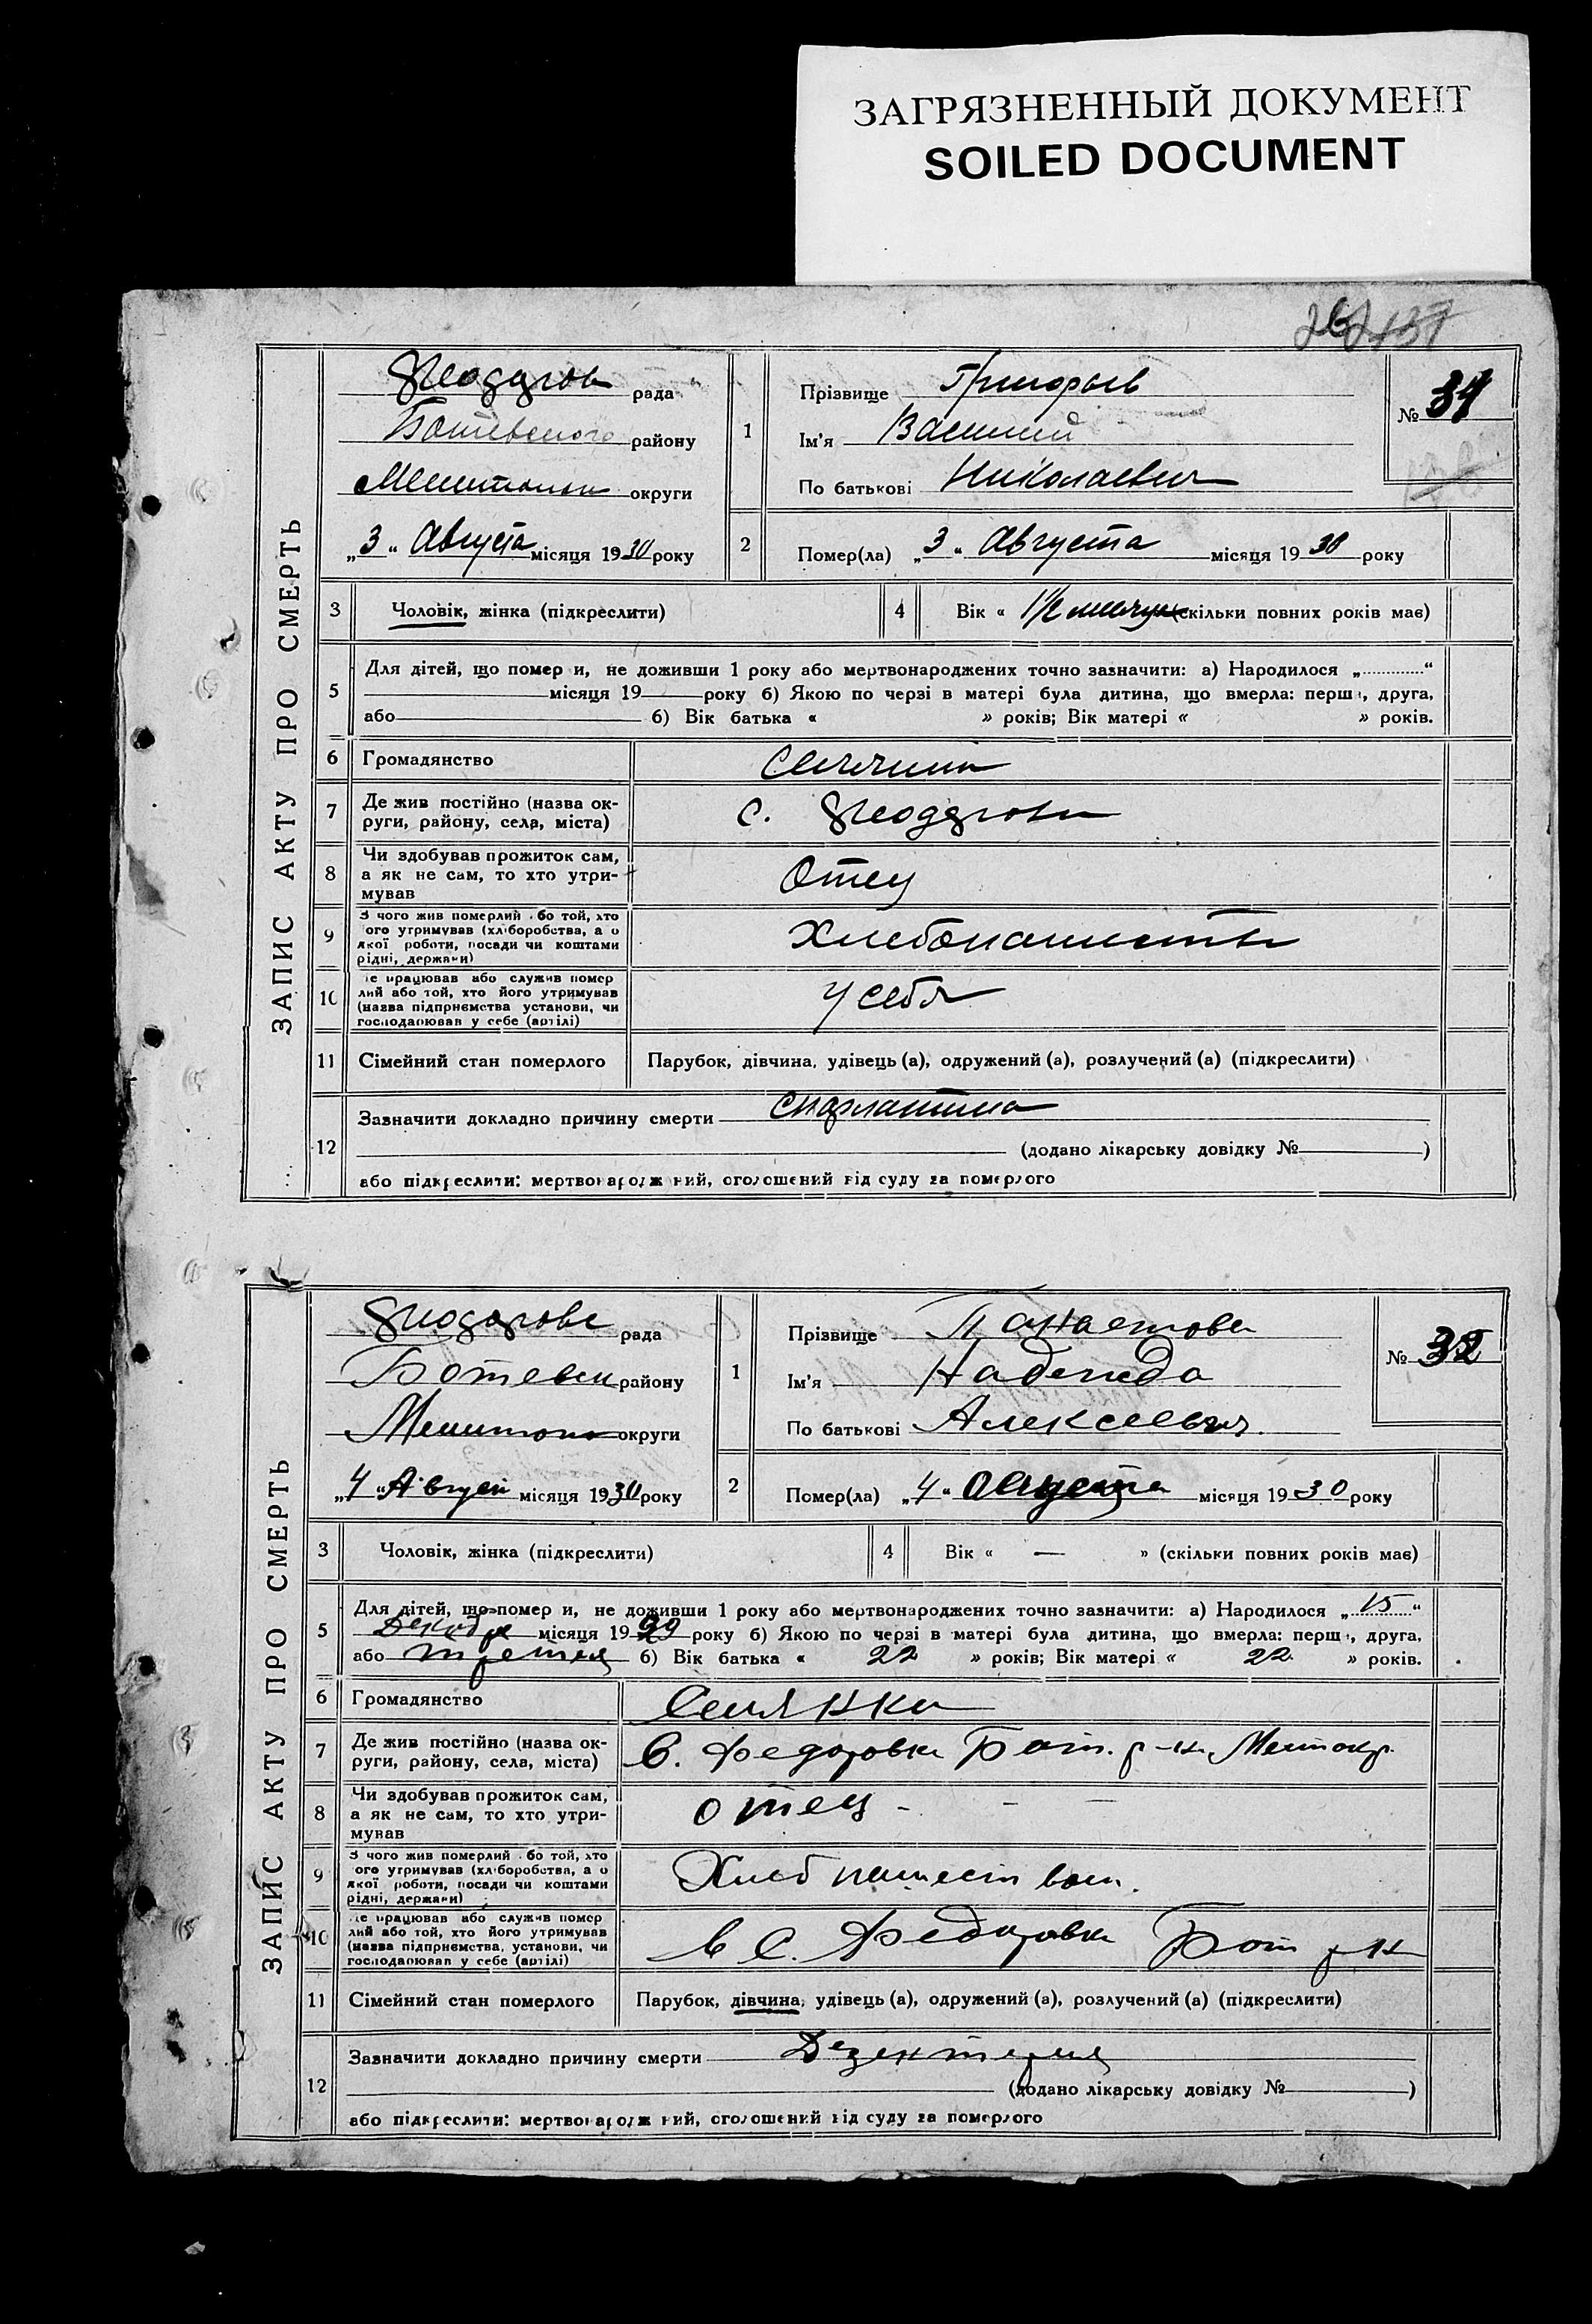 ЗАГРЯЗНЕННЫЙ ДОКУМЕНТ
SOILED DOCUMENT
ЗАПИС АКТУ ПРО СМЕРТЬ
рада
Ботевского району
округи
„3“ Августа місяця 1930 року
1
Прізвище Григорьев
Ім'я Василий
По батькові Николаевич
№ 31
2
Помер(ла) „3“ Августа місяця 1930 року
3 Чоловік, жінка (підкреслити)
4 Вік « 1½ (скільки повних років має)
5 Для дітей, що помер и, не доживши 1 року або мертвонароджених точно зазначити: а) Народилося „ “
місяця 19 року б) Якою по черзі в матері була дитина, що вмерла: перш , друга,
або б) Вік батька « » років; Вік матері « » років.
6 Громадянство
7 Де жив постійно (назва ок-
руги, району, села, міста)
с.
8 Чи здобував прожиток сам,
а як не сам, то хто утри-
мував
Отец
9 З чого жив померлий бо той, хто
ого утримував (хліборобства, а о
якої роботи, посади чи коштами
рідні, держави)
Хлебопашество
10 е працював або служив помер
лий або той, хто його утримував
(назва підприємства установи, чи
господарював у себе (артілі)
У себя
11 Сімейний стан померлого Парубок, дівчина, удівець (а), одружений (а), розлучений (а) (підкреслити)
12 Зазначити докладно причину смерти скарлатина
(додано лікарську довідку № )
або підкреслити: мертвонародж ний, оголошений від суду за померлого
ЗАПИС АКТУ ПРО СМЕРТЬ
рада
Ботевск району
округи
„4“ Август місяця 1930 року
1
Прізвище Панаетова
Ім'я Надежда
По батькові Алексеевич.
№ 32
2
Помер(ла) „4“ Августа місяця 1930 року
3 Чоловік, жінка (підкреслити)
4 Вік « — » (скільки повних років має)
5 Для дітей, що помер и, не доживши 1 року або мертвонароджених точно зазначити: а) Народилося „15“
Декабре місяця 1929 року б) Якою по черзі в матері була дитина, що вмерла: перш , друга,
або третея б) Вік батька « 22 » років; Вік матері « 22 » років.
6 Громадянство Селянка
7 Де жив постійно (назва ок-
руги, району, села, міста)
С. Федоровка Бот. р-н Мелит окр.
8 Чи здобував прожиток сам,
а як не сам, то хто утри-
мував
отец - - —
9 З чого жив померлий бо той, хто
ого утримував (хліборобства, а о
якої роботи, посади чи коштами
рідні, держави)
10 е працював або служив помер
лий або той, хто його утримував
(назва підприємства, установи, чи
господарював у себе (артілі)
в С. Федоровка Бот р-н
11 Сімейний стан померлого Парубок, дівчина, удівець (а), одружений (а), розлучений (а) (підкреслити)
12 Зазначити докладно причину смерти Дезентерия
(додано лікарську довідку № )
або підкреслити: мертвонародж ний, оголошений від суду за померлого